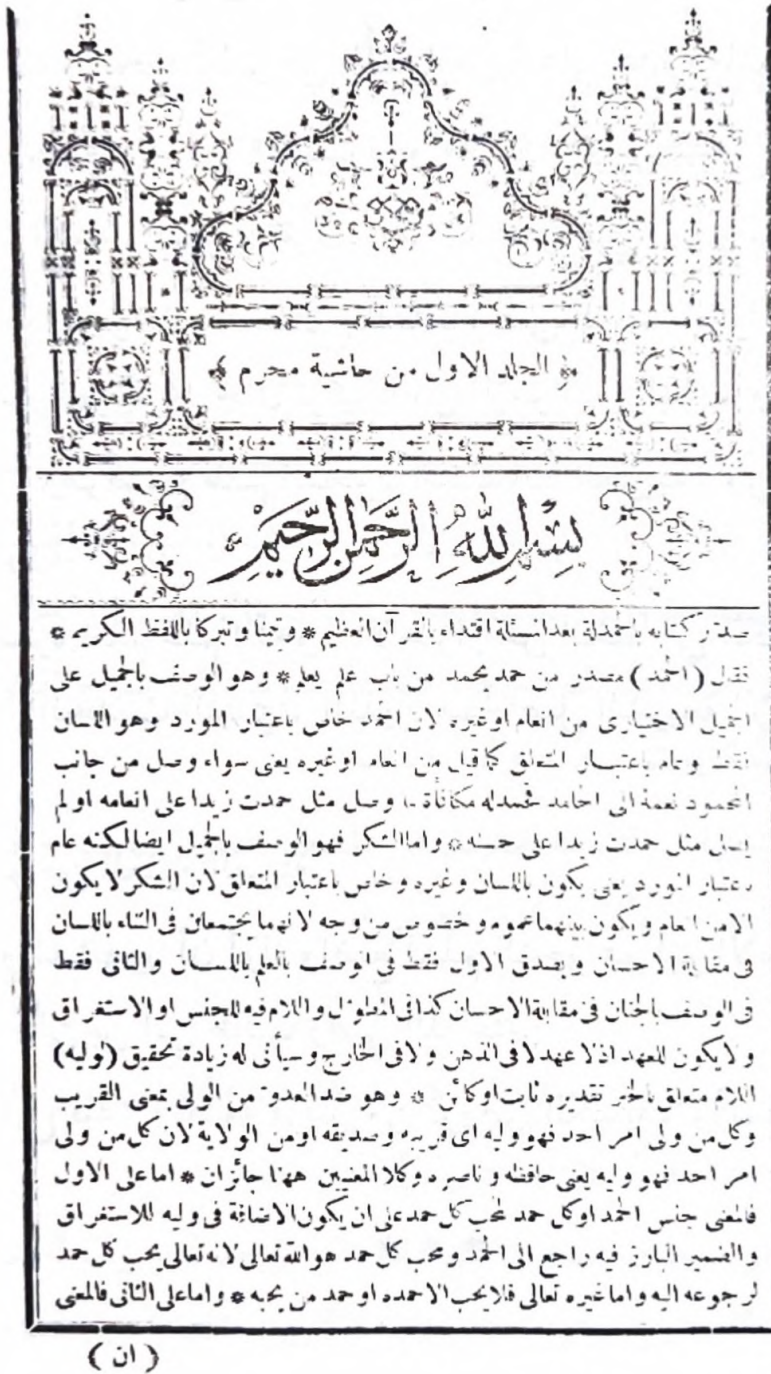 ﴿ الجلد الاول من حاشية محرم ﴾
بسم الله الرحمن الرحيم
صدر كتابه بالحمدلة بعد البسملة اقتداء بالقرآن العظيم * وتيمنا وتبركا باللفظ الكريم *
فقال (الحمد) مصدر من حمد يحمد من باب علم يعلم * وهو الوصف بالجميل على
الجميل الاختيارى من انعام اوغيره لان الحمد خاص باعتبار المورد وهو اللسان
فقط وعام باعتبار المتعلق كما قيل من انعام اوغيره يعنى سواء وصل من جانب
المحمود نعمة الى الحامد فحمدله مكافأة وصل مثل حمدت زيدا على انعامه اولم
يصل مثل حمدت زيدا على حسنه * واما الشكر فهو الوصف بالجميل ايضا لكنه عام
باعتبار المورد يعنى يكون باللسان وغيره وخاص باعتبار المتعلق لان الشكر لايكون
الامن انعام ويكون بينهما عموم وخصوص من وجه لانهما يجتمعان فى الثناء باللسان
فى مقابلة الاحسان ويصدق الاول فقط فى الوصف بالعلم باللسان والثانى فقط
فى الوصف بالجنان فى مقابلة الاحسان كذا فى المطول واللام فيه للجنس اوالاستغراق
ولايكون للعهد اذلا عهد لافى الذهن ولافى الخارج وسيأتى له زيادة تحقيق (لوليه)
اللام متعلق بالخبر تقديره ثابت اوكائن * وهو ضد العدو من الولى بمعنى القريب
وكل من ولى امر احد فهو وليه اى قريبه وصديقه اومن الولاية لان كل من ولى
امر احد فهو وليه يعنى حافظه وناصره وكلا المعنيين ههنا جائزان * اما على الاول
فالمعنى جنس الحمد اوكل حمد لمحب كل حمد على ان يكون الاضافة فى وليه للاستغراق
والضمير البارز فيه راجع الى الحمد ومحب كل حمد هو الله تعالى لانه تعالى يحب كل حمد
لرجوعه اليه واما غيره تعالى فلا يحب الاحمده اوحمد من يحبه * واما على الثانى فالمعنى
( ان )